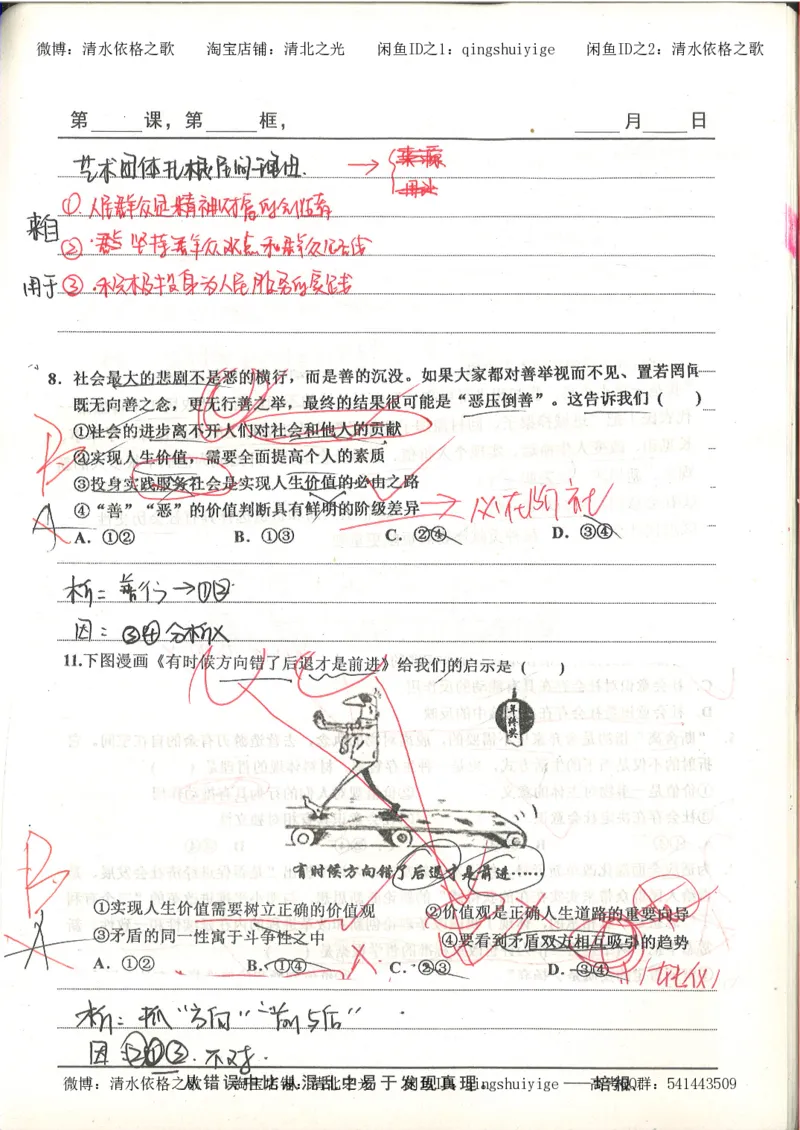 微博：清水依格之歌 淘宝店铺：清北之光 闲鱼ID之1：qingshuiyige 闲鱼ID之2：清水依格之歌
第 课，第 框， 月 日
艺术团体扎根民间
① 人民群众是精神财富的创造者
来自
② 坚持群众观点和群众路线
用于 ③ 积极投身为人民服务的实践
8．社会最大的悲剧不是恶的横行，而是善的沉没。如果大家都对善举视而不见、置若罔闻
既无向善之念，更无行善之举，最终的结果很可能是“恶压倒善”。这告诉我们（ ）
①社会的进步离不开人们对社会和他人的贡献
②实现人生价值，需要全面提高个人的素质
B
③投身实践服务社会是实现人生价值的必由之路
④“善”“恶”的价值判断具有鲜明的阶级差异 → 仅在阶社
A
A．①② B．①③ C．②④ D．③④
析：善行→①③
因：③④分析×
11.下图漫画《有时候方向错了后退才是前进》给我们的启示是（ ）
年终奖
有时候方向错了后退才是前进……
B
①实现人生的价值需要树立正确的价值观 ②价值观是正确人生道路的重要向导
A
③矛盾的同一性寓于斗争性之中 ④要看到矛盾双方相互吸引的趋势
A．①② B．①④ C．②③ D．③④
析：抓“方向”“前与后”
因：②①③．不对．
从错误中比从混乱中易于发现真理. ——培根
微博：清水依格之歌 淘宝店铺：清北之光 闲鱼ID：qingshuiyige QQ群：541443509